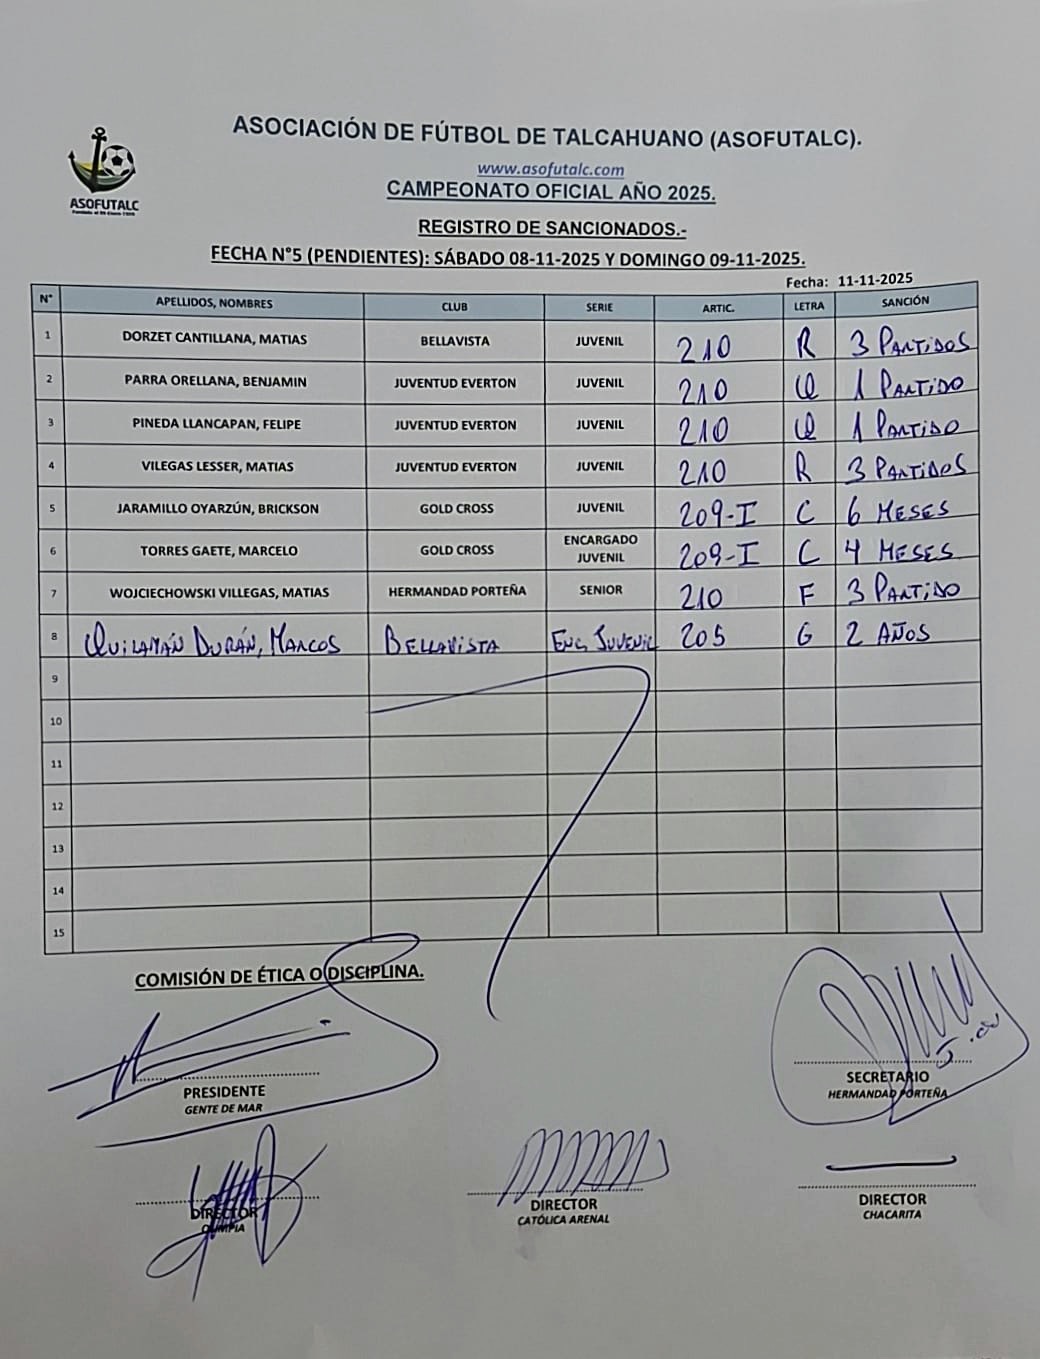 ASOCIACIÓN DE FÚTBOL DE TALCAHUANO (ASOFUTALC).
www.asofutalc.com
CAMPEONATO OFICIAL AÑO 2025.
ASOFUTALC
REGISTRO DE SANCIONADOS.-
FECHA N°5 (PENDIENTES): SÁBADO 08-11-2025 Y DOMINGO 09-11-2025.
Fecha: 11-11-2025
N° APELLIDOS, NOMBRES CLUB SERIE ARTIC. LETRA SANCIÓN
1 DORZET CANTILLANA, MATIAS BELLAVISTA JUVENIL 210 R 3 PARTIDOS
2 PARRA ORELLANA, BENJAMIN JUVENTUD EVERTON JUVENIL 210 Q 1 PARTIDO
3 PINEDA LLANCAPAN, FELIPE JUVENTUD EVERTON JUVENIL 210 Q 1 PARTIDO
4 VILEGAS LESSER, MATIAS JUVENTUD EVERTON JUVENIL 210 R 3 PARTIDOS
5 JARAMILLO OYARZÚN, BRICKSON GOLD CROSS JUVENIL 209-I C 6 MESES
6 TORRES GAETE, MARCELO GOLD CROSS ENCARGADO JUVENIL 209-I C 4 MESES
7 WOJCIECHOWSKI VILLEGAS, MATIAS HERMANDAD PORTEÑA SENIOR 210 F 3 PARTIDO
8 QUILAMÁN DURÁN, MARCOS BELLAVISTA ENC. JUVENIL 205 G 2 AÑOS
9
10
11
12
13
14
15
COMISIÓN DE ÉTICA O DISCIPLINA.
PRESIDENTE
GENTE DE MAR
SECRETARIO
HERMANDAD PORTEÑA
DIRECTOR
OLIMPIA
DIRECTOR
CATÓLICA ARENAL
DIRECTOR
CHACARITA